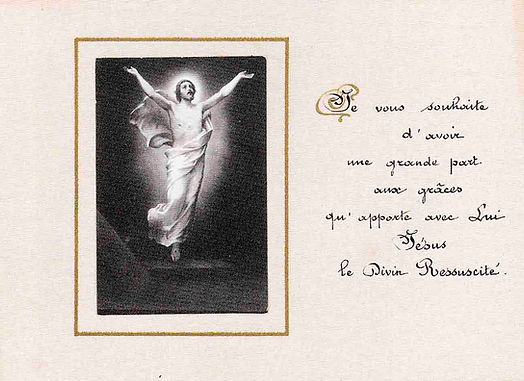 Je vous souhaite
d'avoir
une grande part
aux grâces
qu'apporte avec Lui
Jésus
le Divin Ressuscité.